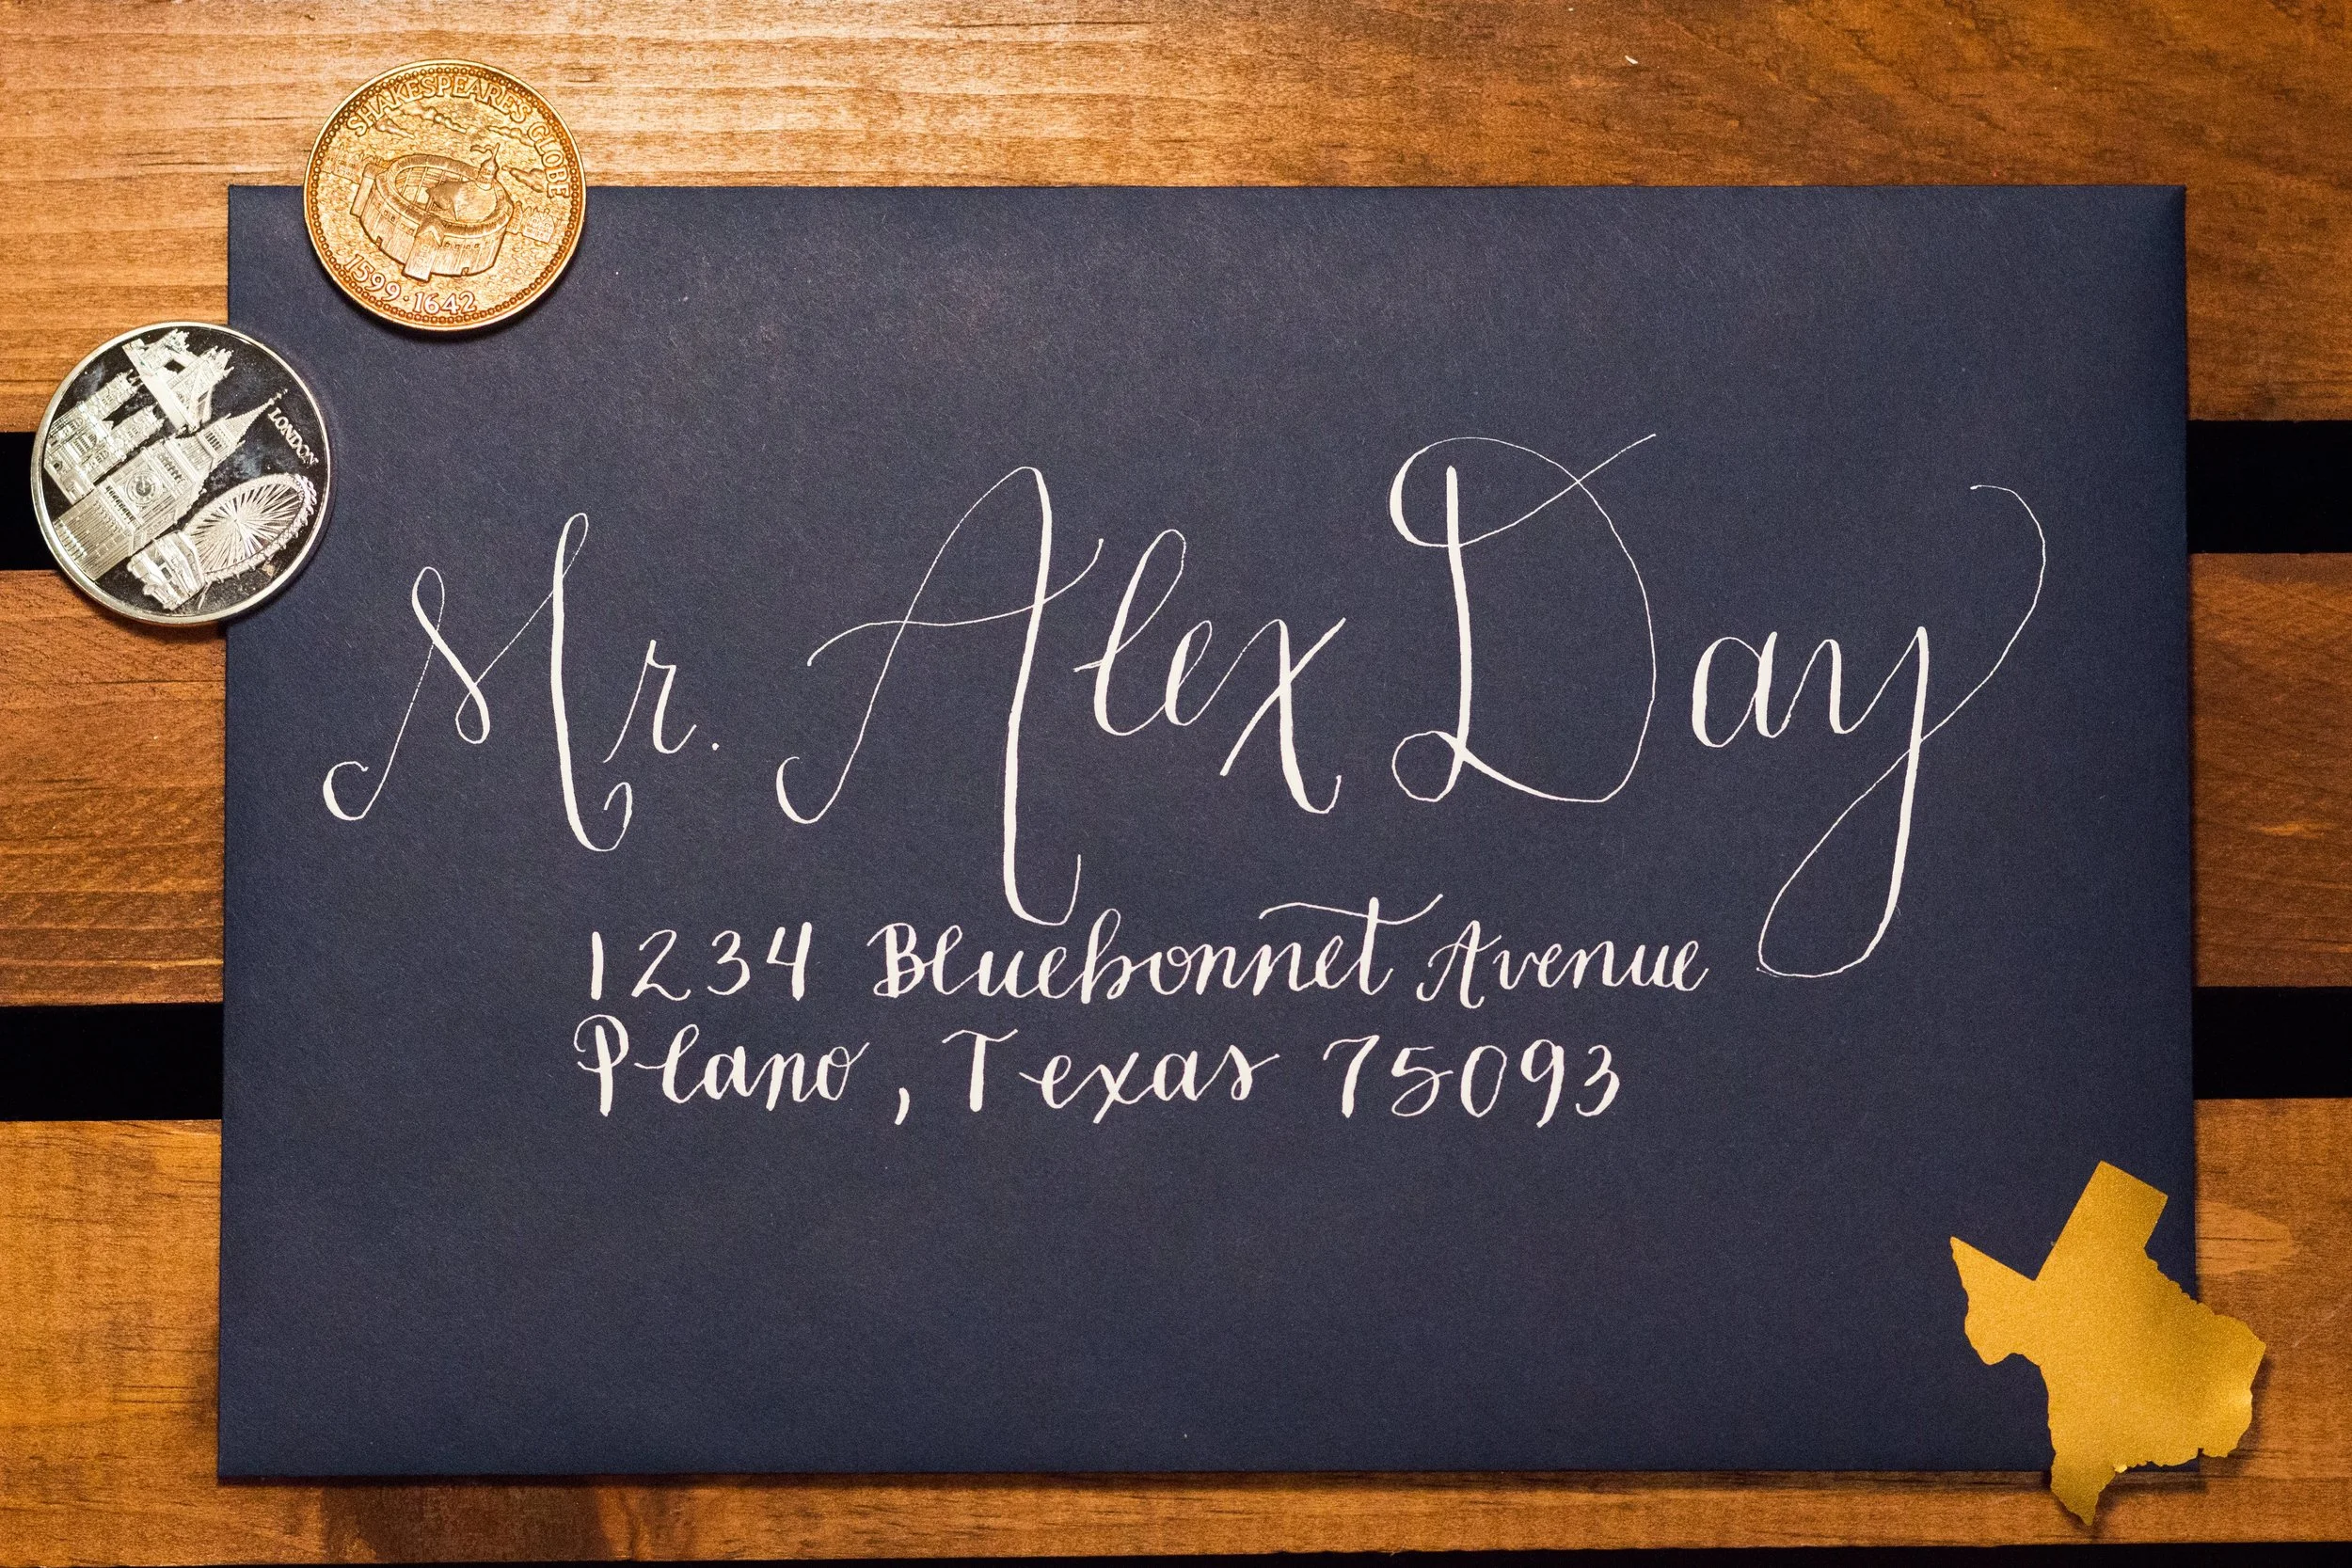 SHAKESPEARE'S GLOBE
1599·1642
LONDON
Mr. Alex Day
1234 Bluebonnet Avenue
Plano, Texas 75093